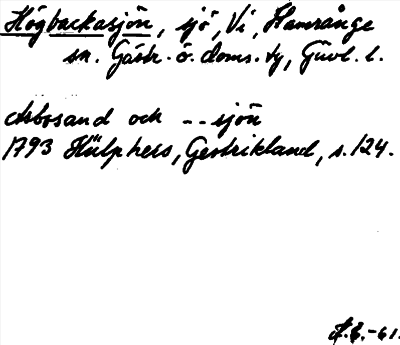 Högbackasjön, sjö, Vi, Hamrånge
sn. Gästr. ö. doms. ty, Gävl. l.
Asbosand och - - sjön
1793 Hülphers, Gestrikland, s. 124.
-61.